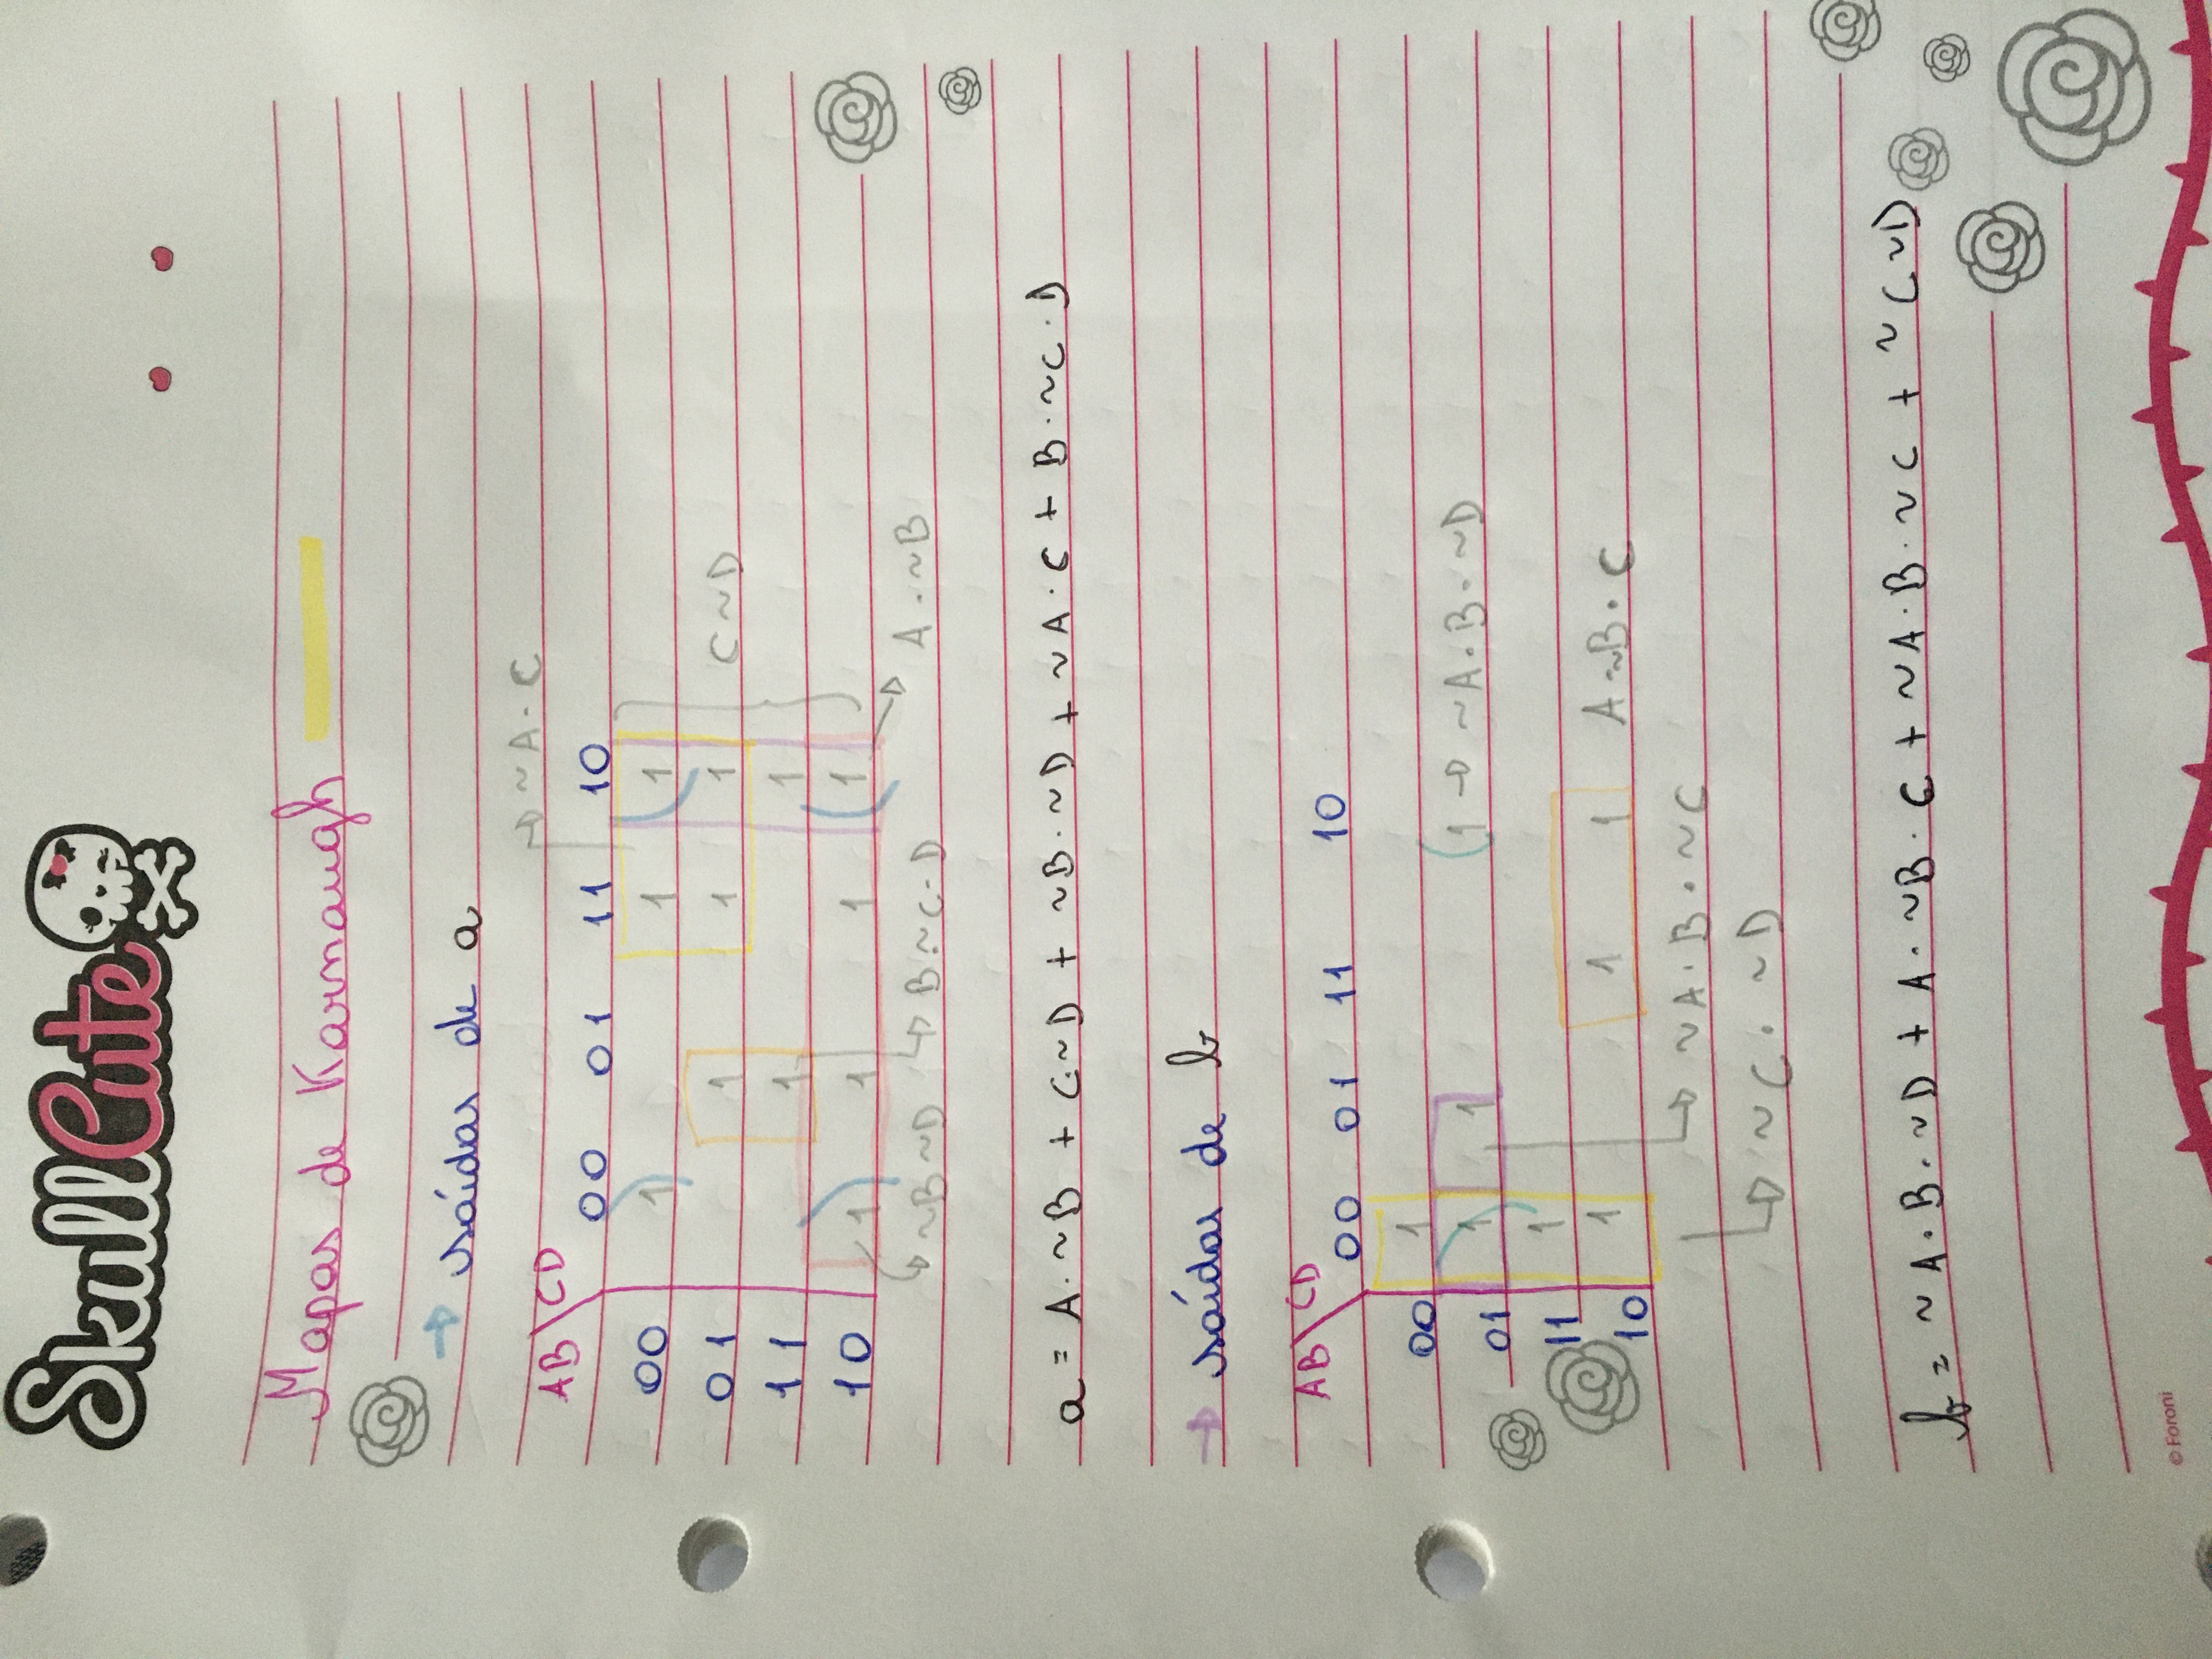 SkullCute
Mapas de Karnaugh
→ saídas de a
→ ~A·C
AB\CD
00 01 11 10
00 1 1 1
01 1 1 1 C~D
11 1 1
10 1 1 1 1
→ ~B~D → B·~C·D → A·~B
a = A·~B + C·~D + ~B·~D + ~A·C + B·~C·D
→ saídas de b
AB\CD
00 01 11 10
00 1
01 1 1 1 → ~A·B·~D
11 1
10 1 1 1 A~B·C
→ ~A·B·~C
→ ~C·~D
b = ~A·B·~D + A·~B·C + ~A·B·~C + ~C~D
© Foroni